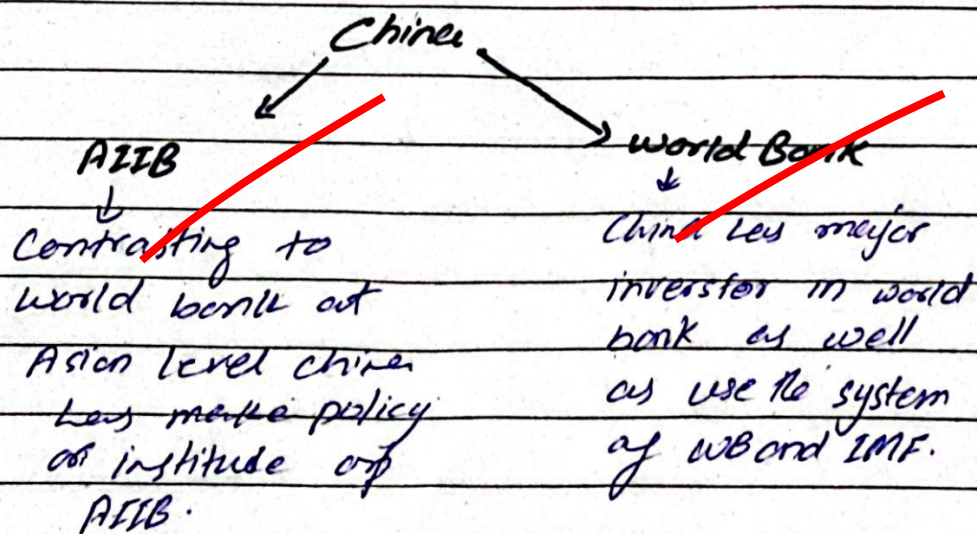 China
AIIB
Contrasting to
world bank at
Asian level china
has make policy
or institute of
AIIB.
world Bank
China has major
inverstor in world
bank as well
as use the system
of WB and IMF.